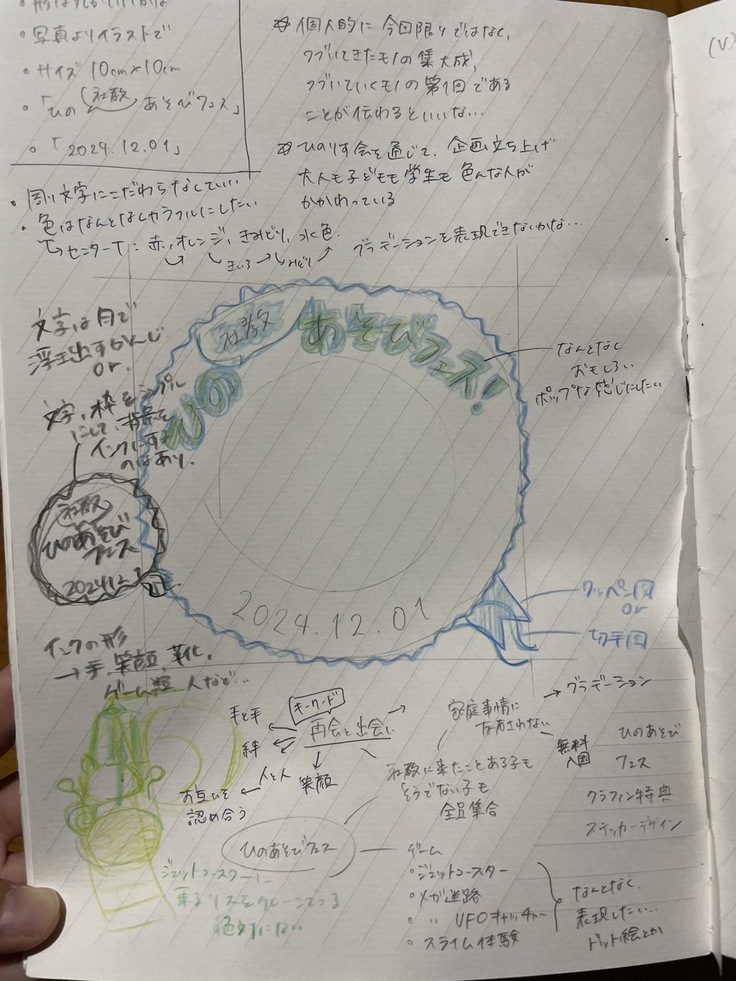 ・写真よりイラストで
・サイズ 10cm×10cm
・「ひの 社教 あそびフェス」
・「2024.12.01」
☆ 個人的に 今回限りではなく、
つづいてきたモノの集大成、
つづいていくモノの第1回である
ことが伝わるといいな…
☆ ひのりす会を通じて、企画立ち上げ
大人も子どもも学生も 色んな人が
かかわっている
・周り文字にこだわらなくていい…
・色はなんとなくカラフルにしたい
↳センターT:赤、オレンジ、きみどり、水色。
きいろ→みどり
グラデーションを表現できないかな…
文字は白で
浮き出すかんじ
or.
文字、枠をシンプル
にして、背景を
インクにする
のはあり。
ひの 社教 あそびフェス!
なんとなく
おもしろい
ポップな感じにしたい
社教
ひのあそび
フェス
2024.12.1
2024.12.01
ワッペン風
or
切手風
インクの形
→手、笑顔、
ゲーム 人など…
キーワード
再会と出会い
手と手
絆
人と人
お互いを
認め合う
笑顔
家庭事情に
左右されない
→グラデーション
無料
入園
社教に来たことある子も
そうでない子も
全員集合
ひのあそび
フェス
クラファン特典
ステッカーデザイン
ひのあそびフェス
ゲーム
・ジェットコースター
・メガ迷路
・ 〃 UFOキャッチャー
・スライム体験
なんとなく、
表現したい…
ドット絵とか
ジェットコースターに
乗るリスを